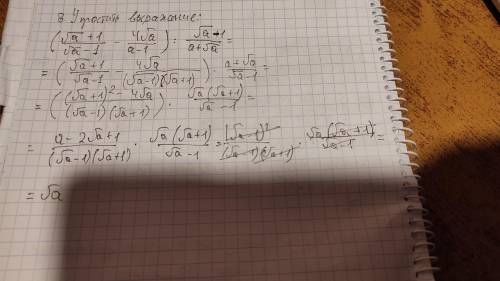 3. Упростить выражение:
(√a + 1 / √a - 1 - 4√a / a - 1) : √a - 1 / a + √a =
= (√a + 1 / √a - 1 - 4√a / (√a - 1)(√a + 1)) · a + √a / √a - 1 =
= ((√a + 1)² - 4√a / (√a - 1)(√a + 1)) · √a (√a + 1) / √a - 1 =
= a - 2√a + 1 / (√a - 1)(√a + 1) · √a (√a + 1) / √a - 1 = (√a - 1)² / (√a - 1)(√a + 1) · √a (√a + 1) / √a - 1 =
= √a